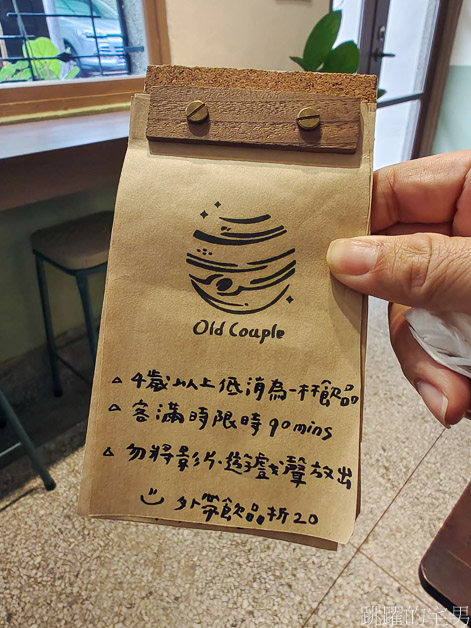 Old Couple
△ 4歲以上低消為一杯飲品
△ 客滿時限時90mins
△ 勿將影片、遊戲聲放出
外帶飲品折20
跳躍的宅男